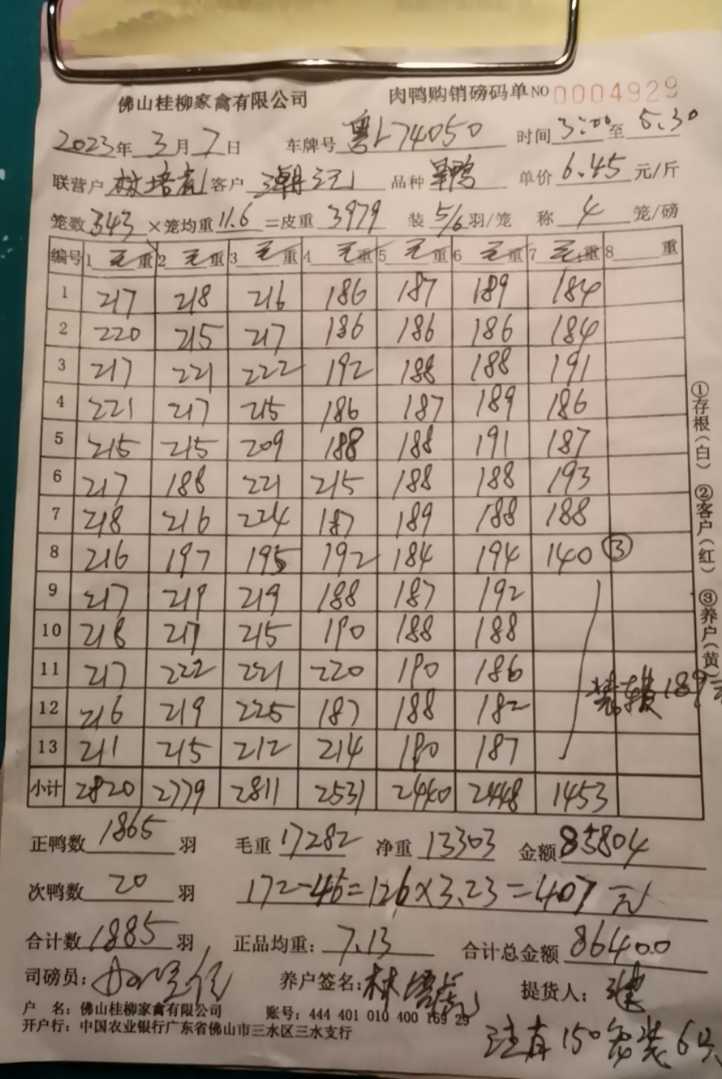 佛山桂柳家禽有限公司 肉鸭购销磅码单 NO 0004929
2023年 3月 7日 车牌号 粤L74050 时间 3:00 至 5:30
联营户 林培 客户 潮记 品种 旱鸭 单价 6.45 元/斤
笼数 343 ×笼均重 11.6 =皮重 3979 装 5/6 羽/笼 称 4 笼/磅
编号 1 毛重 2 毛重 3 毛重 4 毛重 5 毛重 6 毛重 7 毛重 8 重
1 217 218 216 186 187 189 184
2 220 215 217 186 186 186 184
3 217 221 222 192 188 188 191
4 221 217 215 186 187 189 186
5 215 215 209 188 188 191 187
6 217 188 221 215 188 188 193
7 218 216 224 187 189 188 188
8 216 197 195 192 184 194 140 ③
9 217 219 219 188 187 192
10 218 217 215 190 188 188
11 217 222 221 220 190 186
12 216 219 225 187 188 182
13 211 215 212 214 190 187
小计 2820 2779 2811 2531 2440 2448 1453
189
①存根(白) ②客户(红) ③养户(黄
正鸭数 1865 羽 毛重 17282 净重 13303 金额 85804
次鸭数 20 羽 172-46=126×3.23=407元
合计数 1885 羽 正品均重: 7.13 合计总金额 86400
司磅员: 养户签名: 林培 提货人:
户 名: 佛山桂柳家禽有限公司 账号: 444 401 010 400 169 29
开户行: 中国农业银行广东省佛山市三水区三水支行
注有150 笼装6只